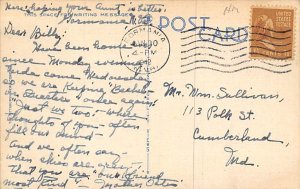 Here's hoping your Aunt is better.
THIS SPACE FOR WRITING MESSAGES
POST CARD
Dear Billy,
Have been home
since Monday evening
came Wednesday
so we are keeping "Bachelor
Quarters" once again!
"Just we two", where
thoughts of your often
fill our mind
And we often say
when skies are
That you are "our friend
most kind"
Mr. Wm. Sullivan,
113 Polk St.
Cumberland,
Md.